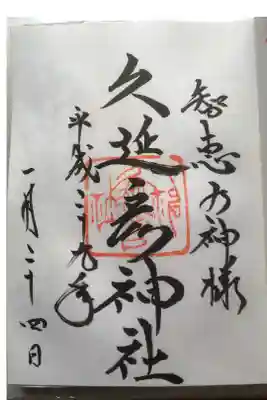 智恵の神様
久延彦神社
平成二十九年
一月二十四日